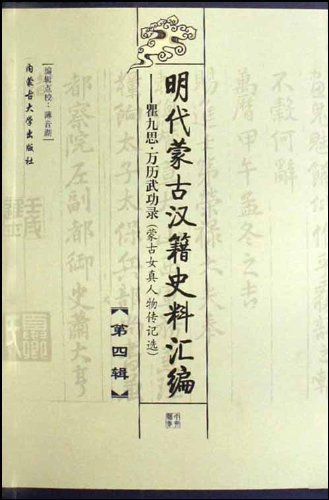 萬曆甲午孟冬之吉
明代蒙古汉籍史料汇编
——瞿九思·万历武功录（蒙古女真人物传记选）
【第四辑】
太子太保兵部
都察院左副都御史蕭大亨
编辑点校：薄音湖
内蒙古大学出版社